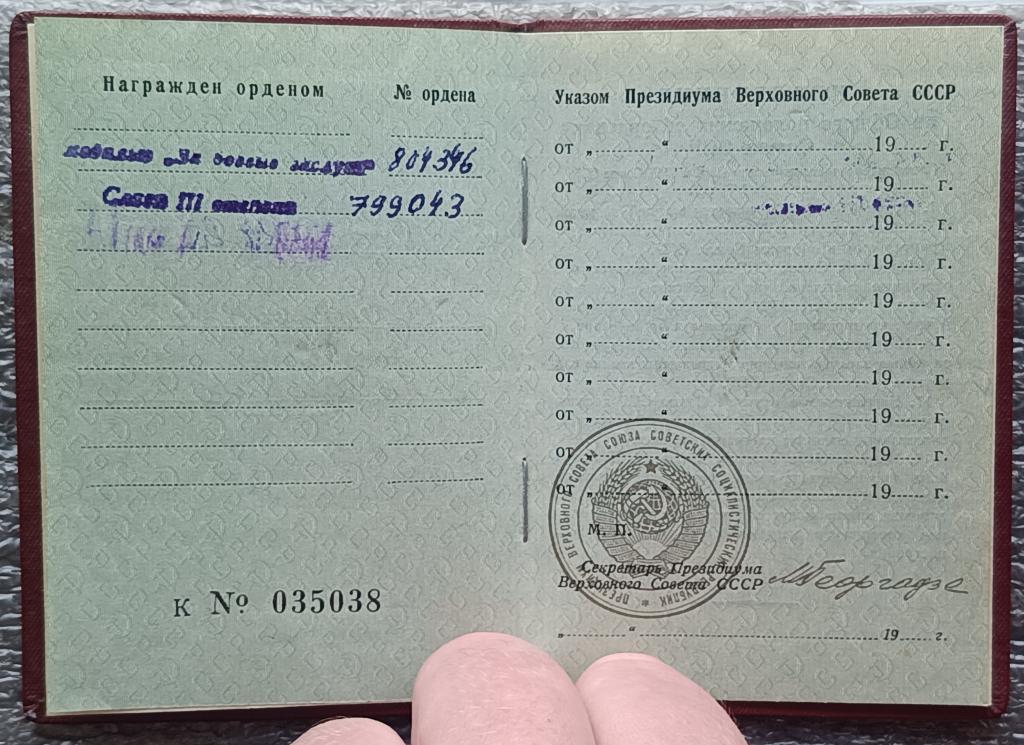 Награжден орденом № ордена
медалью „За боевые заслуги" 804346
Слава III степени 799043
К № 035038
Указом Президиума Верховного Совета СССР
от „ “ 19 г.
от „ “ 19 г.
от „ “ 19 г.
от „ “ 19 г.
от „ “ 19 г.
от „ “ 19 г.
от „ “ 19 г.
от „ “ 19 г.
от „ “ 19 г.
от „ “ 19 г.
М. П.
Секретарь Президиума
Верховного Совета СССР МГеоргадзе
„ “ 19 г.
ПРЕЗИДИУМ ВЕРХОВНОГО СОВЕТА СОЮЗА СОВЕТСКИХ СОЦИАЛИСТИЧЕСКИХ РЕСПУБЛИК